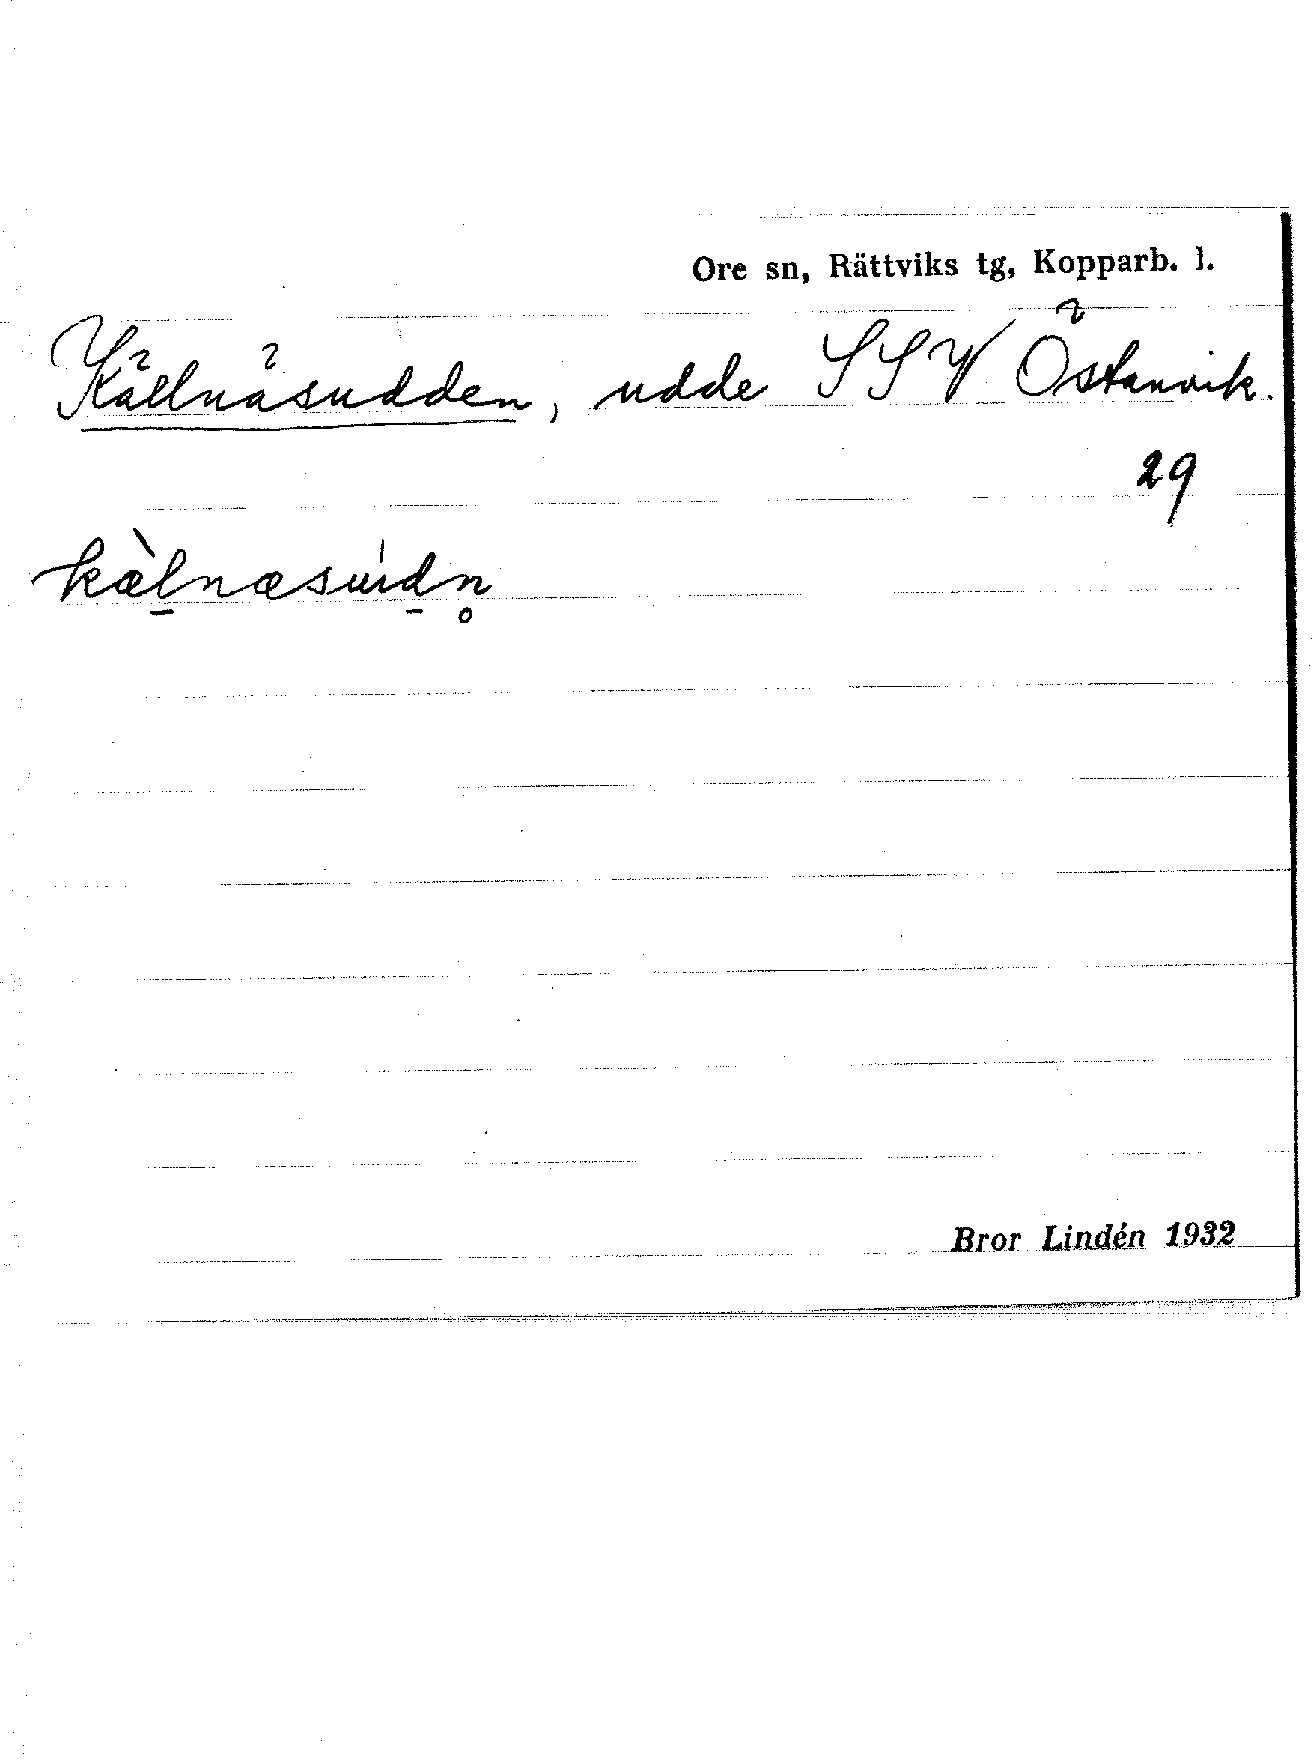 Ore sn, Rättviks tg, Kopparb. l.
Källnäsudden, udde SSV Östanvik.
29
kæ̀l̠næsuíd̠n̥
Bror Lindén 1932